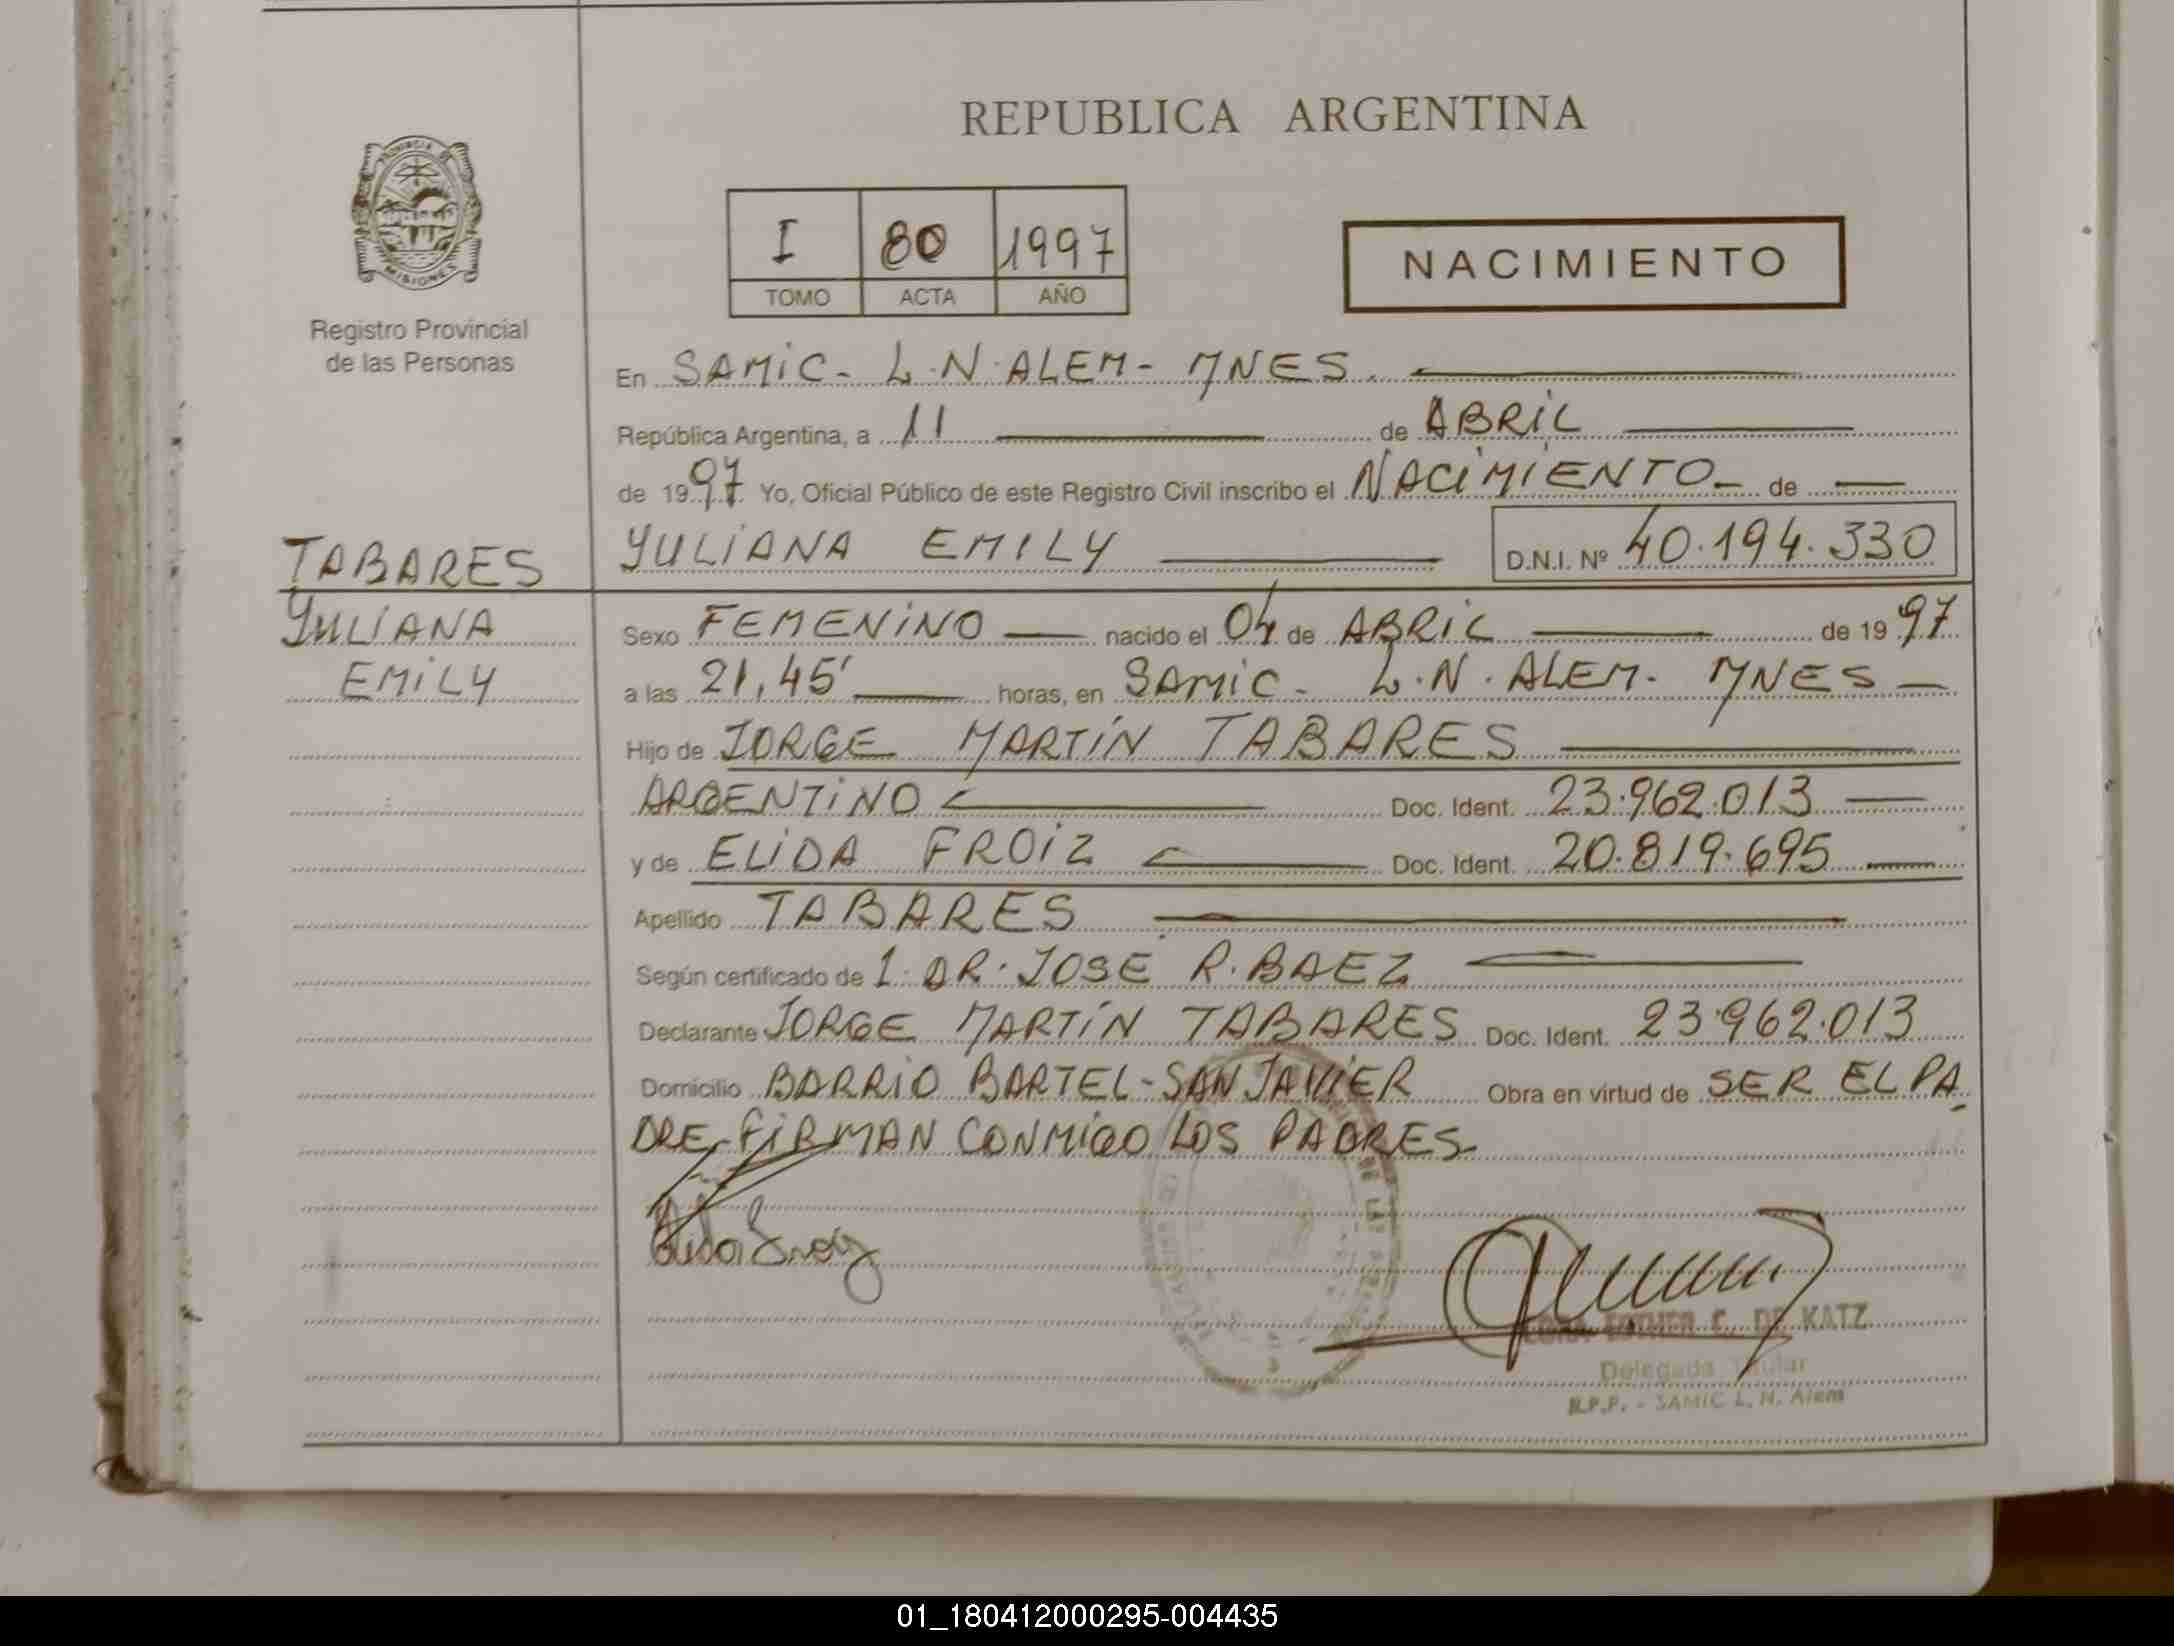 REPUBLICA ARGENTINA
PROVINCIA DE
MISIONES
Registro Provincial
de las Personas
I 80 1997
TOMO ACTA AÑO
NACIMIENTO
En SAMIC - L.N. ALEM - MNES.
República Argentina, a 11 de ABRIL
de 1997 Yo, Oficial Público de este Registro Civil inscribo el NACIMIENTO - de
YULIANA EMILY D.N.I. Nº 40.194.330
TABARES
YULIANA
EMILY
Sexo FEMENINO nacido el 04 de ABRIL de 1997
a las 21,45' horas, en SAMIC - L.N. ALEM - MNES
Hijo de JORGE MARTÍN TABARES
ARGENTINO Doc. Ident. 23.962.013
y de ELIDA FROIZ Doc. Ident. 20.819.695
Apellido TABARES
Según certificado de 1. DR. JOSE R. BAEZ
Declarante JORGE MARTÍN TABARES Doc. Ident. 23.962.013
Domicilio BARRIO BARTEL - SAN JAVIER Obra en virtud de SER EL PA
DRE - FIRMAN CONMIGO LOS PADRES -
Elida Froiz
ESTHER C. DE KATZ
Delegada Titular
R.P.P. - SAMIC L. N. Alem
01_180412000295-004435